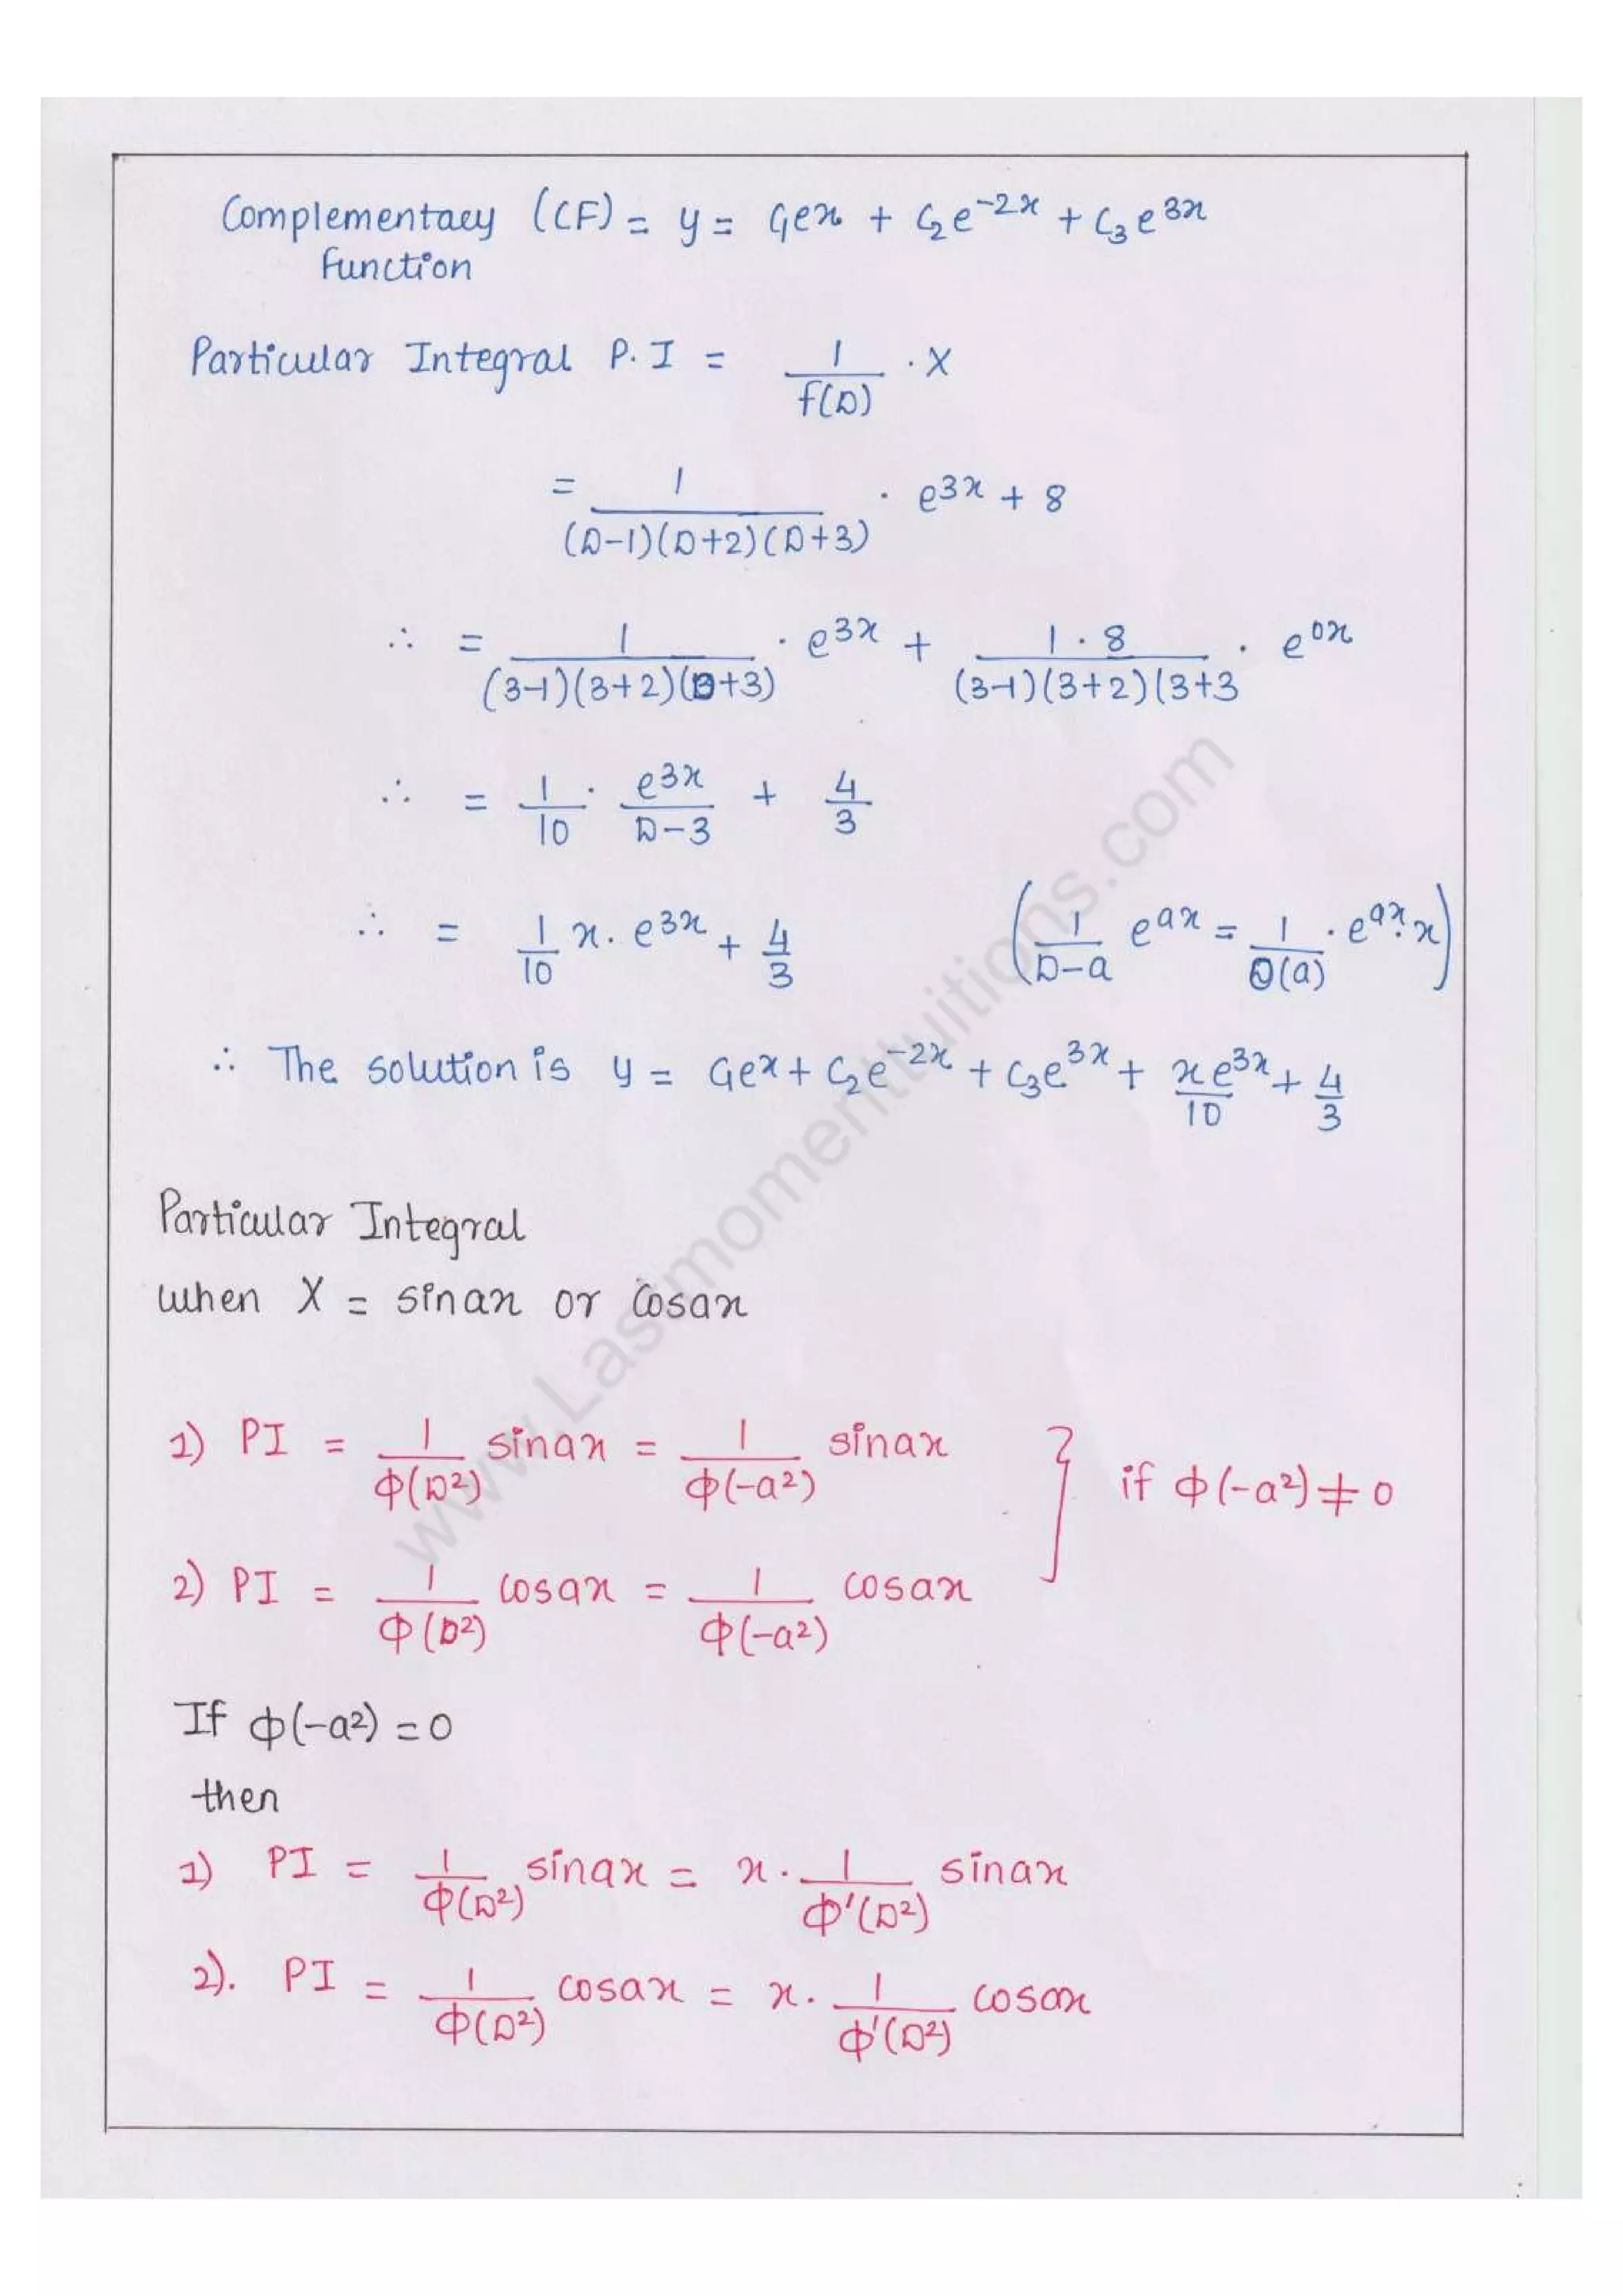 Complementaey (CF) = y = C₁eˣ + C₂e⁻²ˣ + C₃e³ˣ
Function
Particular Integral P.I = 1/f(D) · X
= 1/(D-1)(D+2)(D+3) · e³ˣ + 8
∴ = 1/(3-1)(3+2)(D+3) · e³ˣ + 1·8/(3-1)(3+2)(3+3 · e⁰ˣ
∴ = 1/10 · e³ˣ/D-3 + 4/3
∴ = 1/10 x· e³ˣ + 4/3 (1/D-a eᵃˣ = 1/Φ(a) · eᵃˣ· x)
∴ The solution is y = C₁eˣ + C₂e⁻²ˣ + C₃e³ˣ + xe³ˣ/10 + 4/3
Particular Integral
when X = sinax or cosax
1) PI = 1/Φ(D²) sinax = 1/Φ(-a²) sinax
if Φ(-a²) ≠ 0
2) PI = 1/Φ(D²) cosax = 1/Φ(-a²) cosax
If Φ(-a²) = 0
then
1) PI = 1/Φ(D²) sinax = x· 1/Φ'(D²) sinax
2). PI = 1/Φ(D²) cosax = x· 1/Φ'(D²) cosax
www.Lastmomenttuitions.com